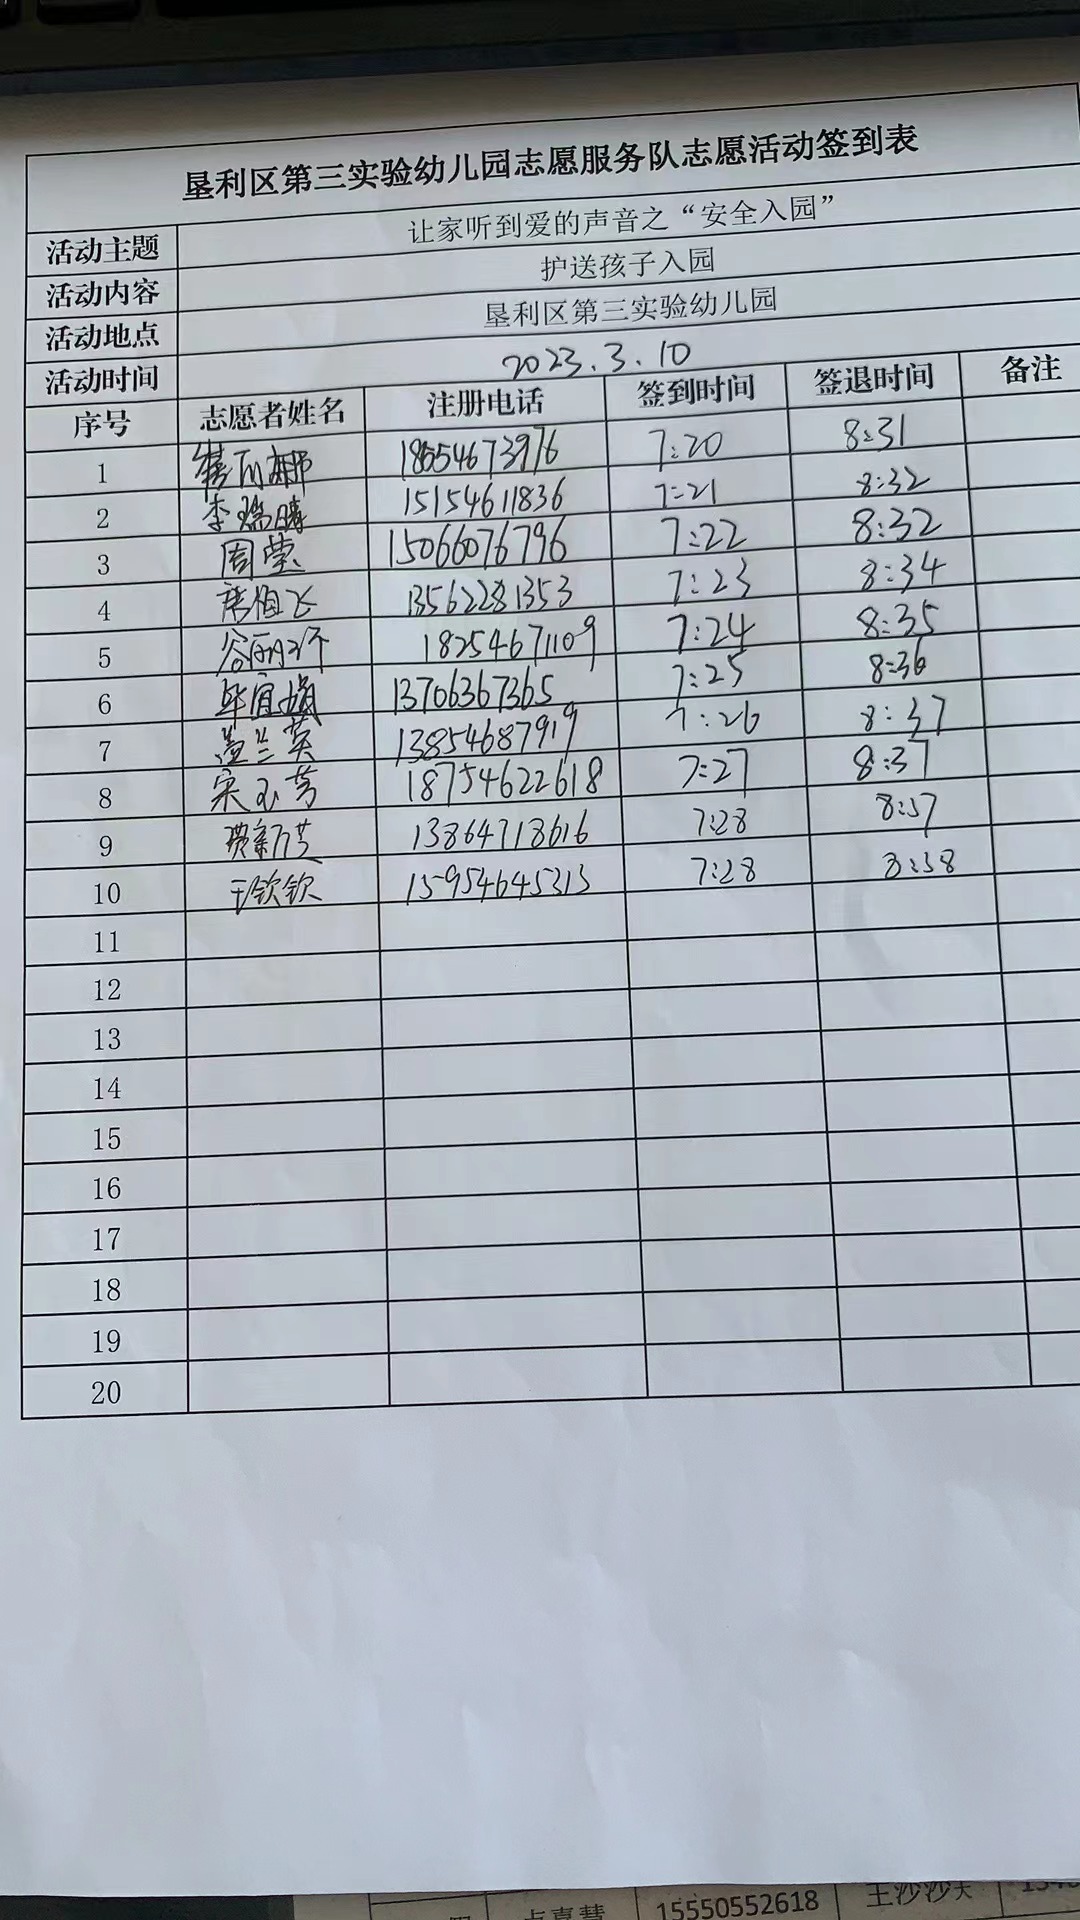 垦利区第三实验幼儿园志愿服务队志愿活动签到表
活动主题 让家听到爱的声音之“安全入园”
活动内容 护送孩子入园
活动地点 垦利区第三实验幼儿园
活动时间 2023.3.10
序号 志愿者姓名 注册电话 签到时间 签退时间 备注
1 18654673976 7:20 8:31
2 李瑞晴 15154611836 7:21 8:32
3 周莹 15066076796 7:22 8:32
4 13562281353 7:23 8:34
5 谷丽 18254671109 7:24 8:35
6 毕宜娟 13706367365 7:25 8:36
7 盖兰英 13854687919 7:26 8:37
8 宋玉芳 18754622618 7:27 8:37
9 13864718616 7:28 8:37
10 王钦钦 15954645313 7:28 8:38
11
12
13
14
15
16
17
18
19
20
15550552618 王沙沙